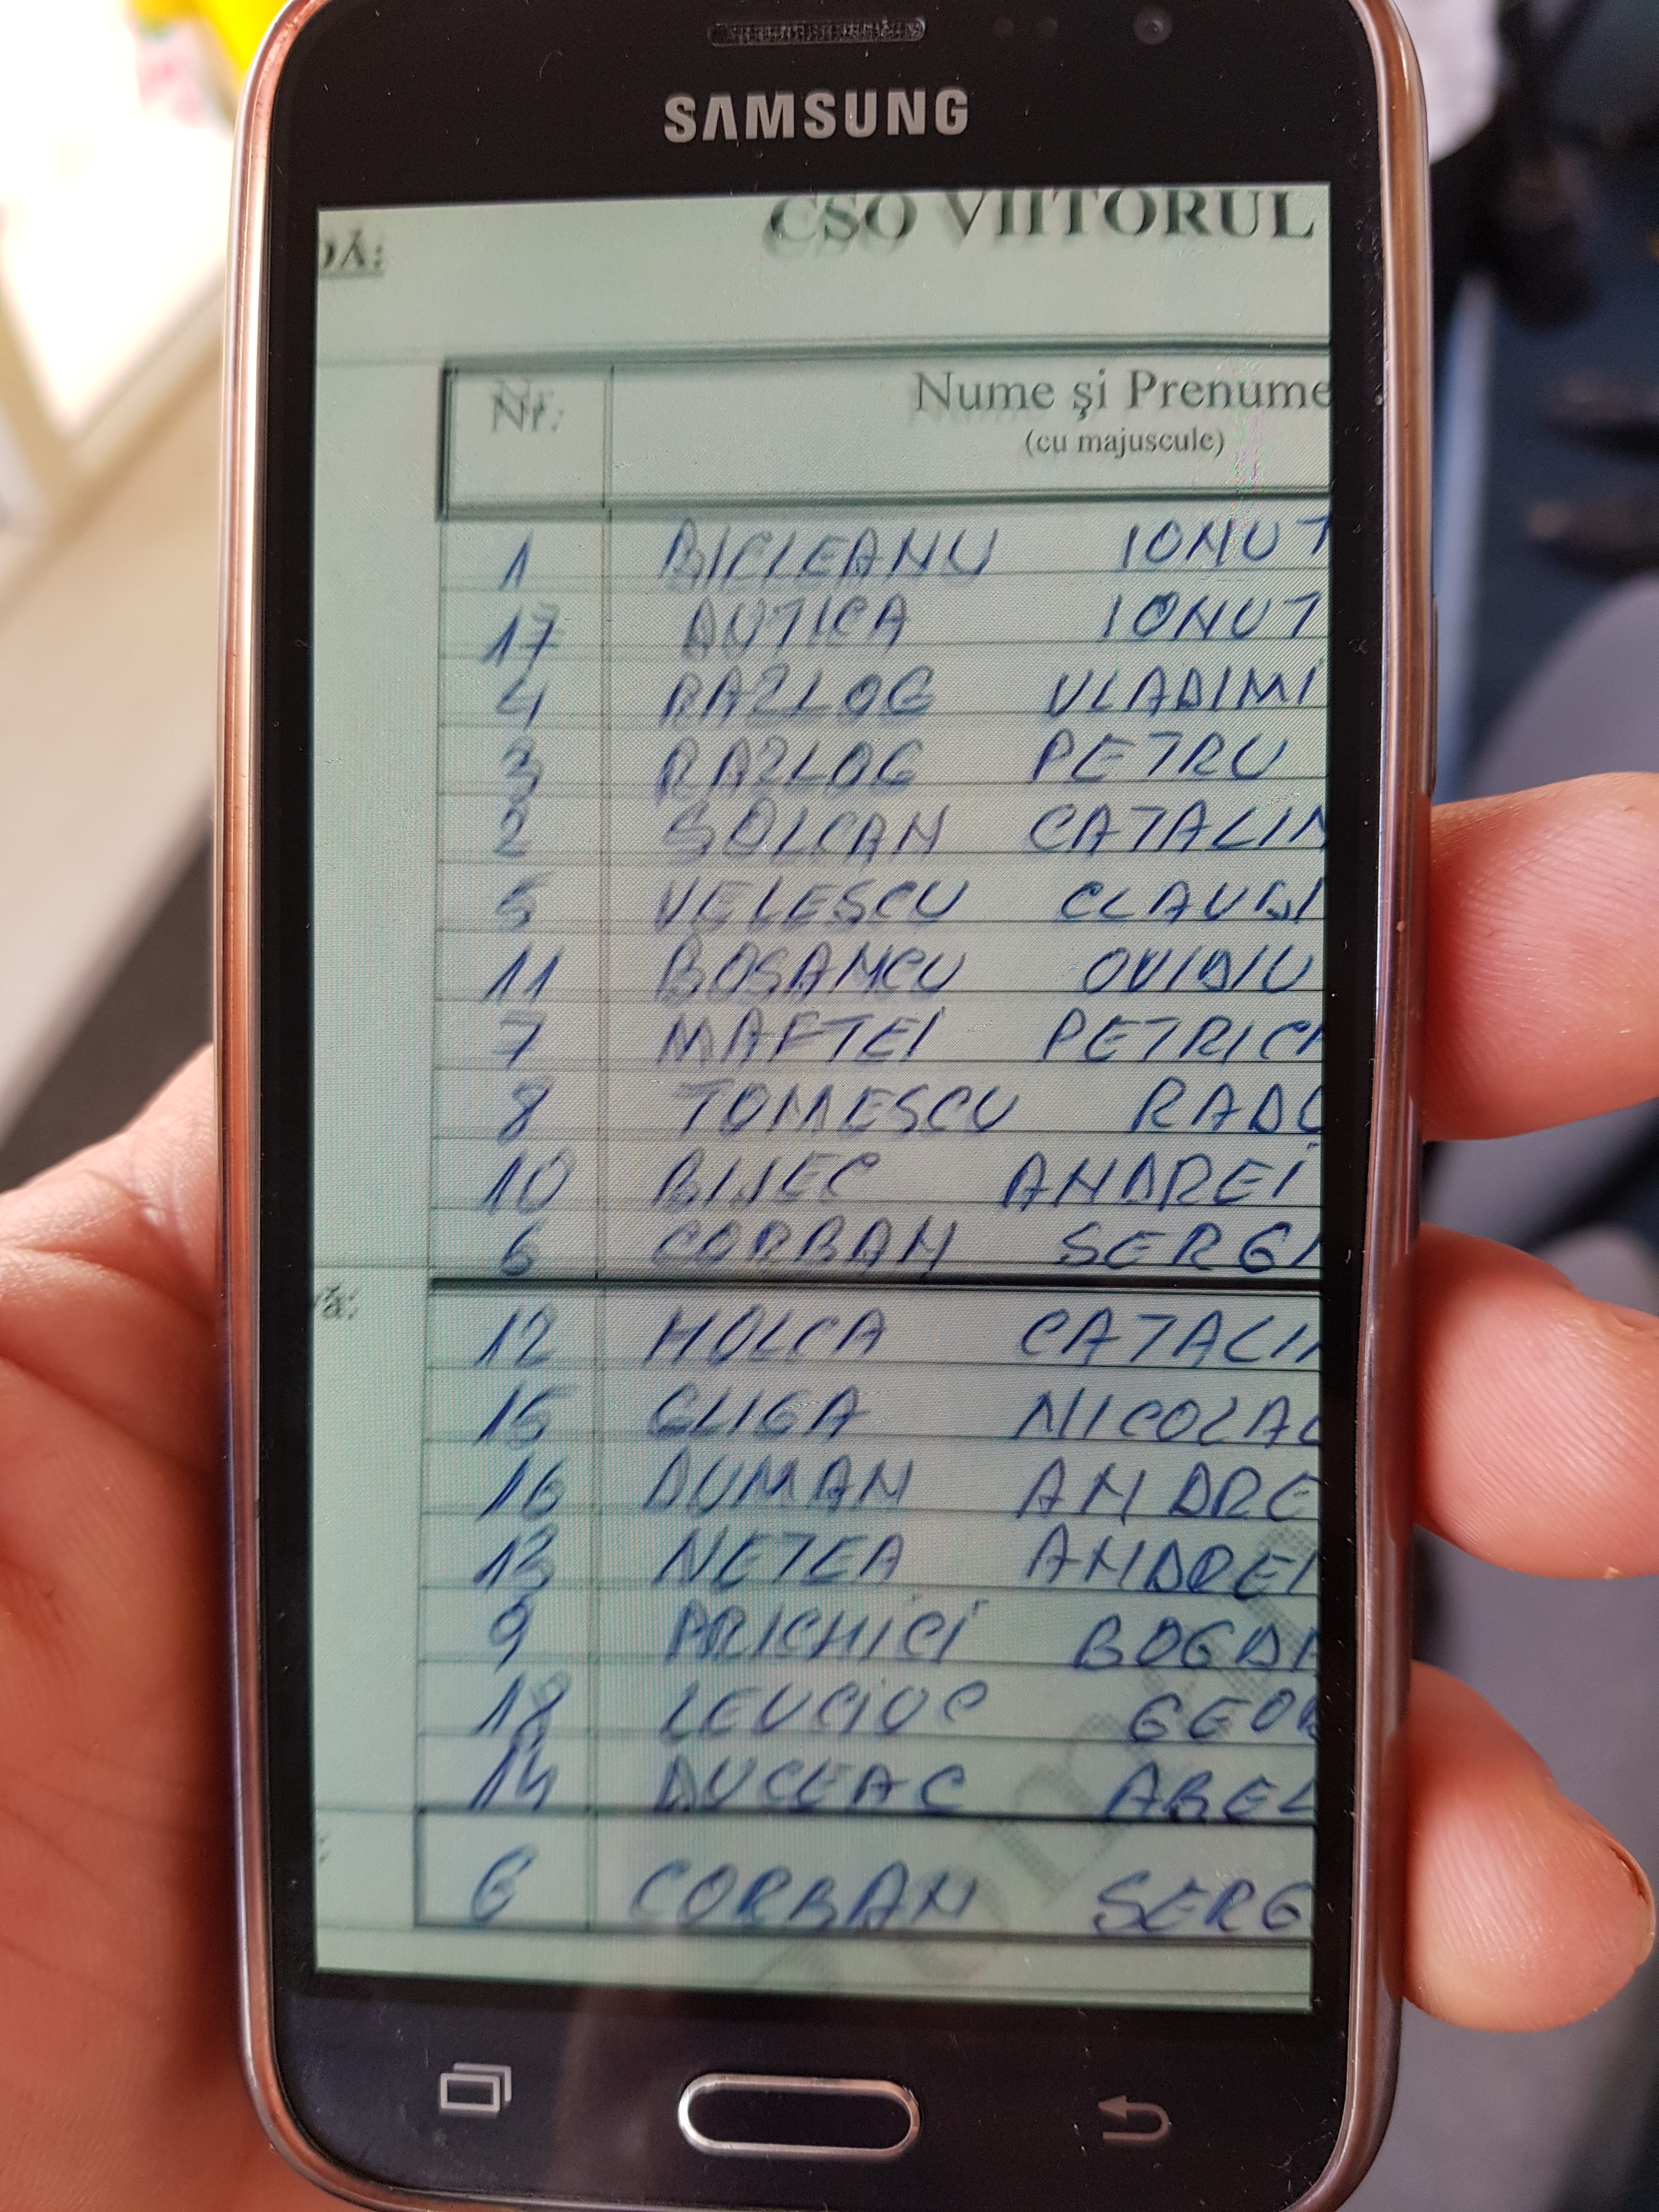 SAMSUNG
CSO VIITORUL
DĂ:
Nr. Nume şi Prenume
(cu majuscule)
1 BICLEANU IONUT
17 AUTICA IONUT
4 RAZLOG VLADIMI
3 RAZLOG PETRU
2 SOLCAN CATALIN
5 VELESCU CLAUDI
11 BOSANCU OVIDIU
7 MAFTEI PETRIC
8 TOMESCU RADU
10 BIJEC ANDREI
6 CORBAN SERGI
vă:
12 HOLCA CATALIN
15 GLIGA NICOLAE
16 DUMAN ANDRE
13 NETEA ANDREI
9 PRICHICI BOGDA
18 LEUCIUC GEOR
14 DUCEAC ABEL
6 CORBAN SERG